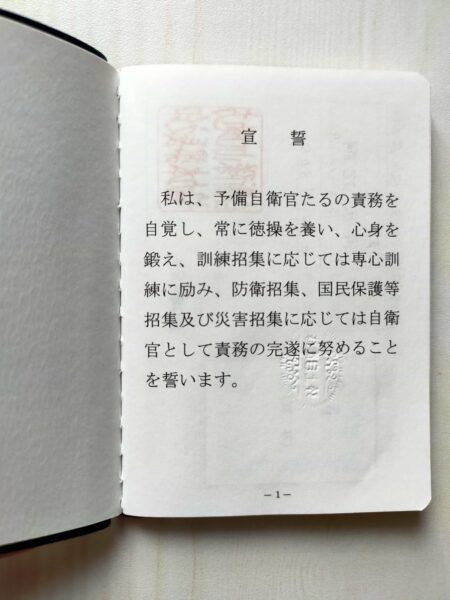 宣誓
私は、予備自衛官たるの責務を
自覚し、常に徳操を養い、心身を
鍛え、訓練招集に応じては専心訓
練に励み、防衛招集、国民保護等
招集及び災害招集に応じては自衛
官として責務の完遂に努めること
を誓います。
－1－